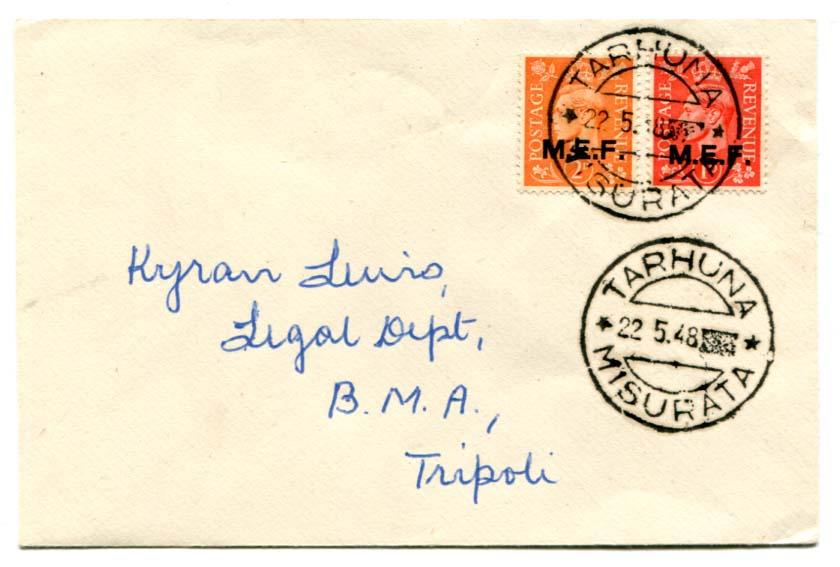 TARHUNA
22 5.48
MISURATA
POSTAGE REVENUE
M.E.F.
2D
POSTAGE REVENUE
M.E.F.
1D
Kyran Lewis,
Legal Dept,
B.M.A.,
Tripoli
TARHUNA
22 5.48
MISURATA